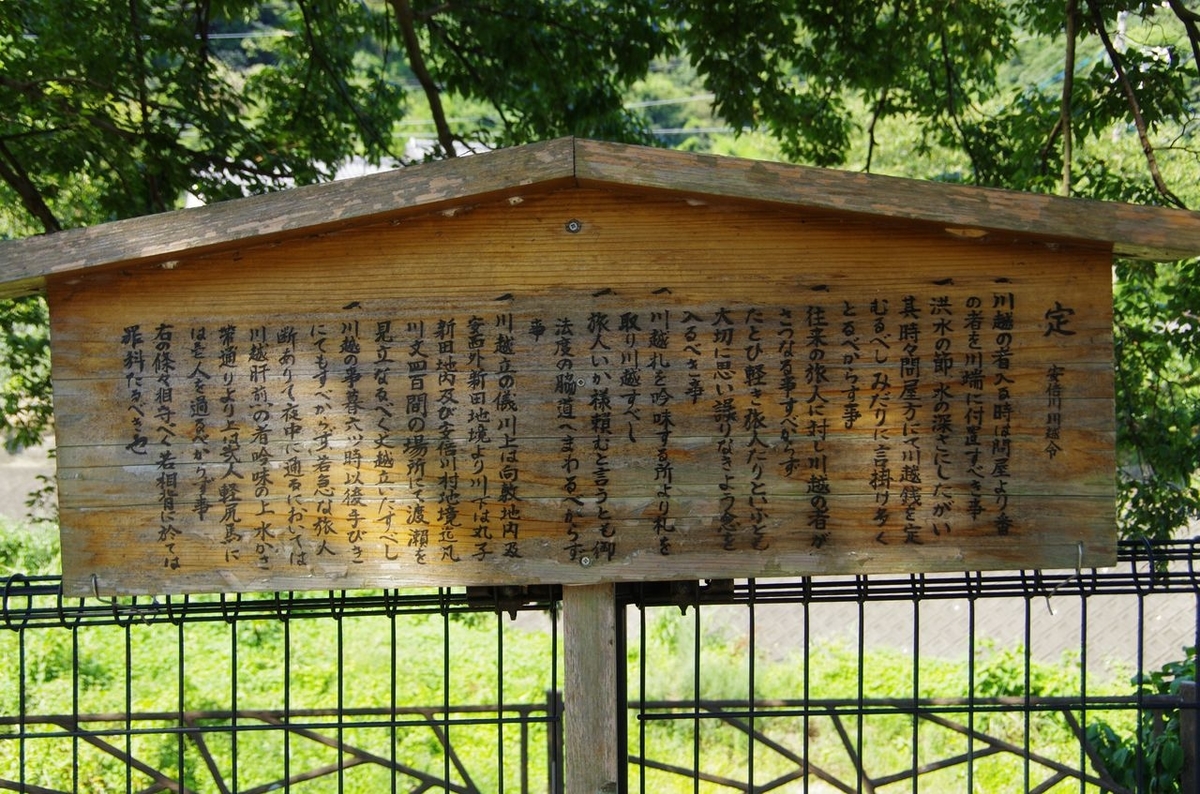 定　安倍川川越令
一 川越の者入る時は問屋より番
の者を川端に付置すべき事
一 洪水の節、水の深さにしたがい
其時々問屋方にて川越銭を定
むるべし みだりに言掛け多く
とるべからす事
一 往来の旅人に対し川越の者が
さつなる事すべからず
たとひ軽き旅人たりといふとも
大切に思い誤りなきよう念を
入るべき事
一 川越札を吟味する所より札を
取り川越すべし
一 旅人いか様頼むと言うとも御
法度の脇道へまわるべからず
事
一 川越立の儀川上は向敷地内及
安西外新田地境より川下は丸子
新田地内及び安倍川村地境迄凡
川丈四百間の場所にて渡瀬を
見立なるべく丈越立いたすべし
一 川越の事暮六ツ時以後手びき
にてもすべからず若急な旅人
断ありて夜中に通るにおいては
川越肝煎の者吟味の上水かさ
帯通りより上は弐人 軽尻馬に
は壱人を過るべからず事
右の條々相守べく若相背に於ては
罪料たるべき也